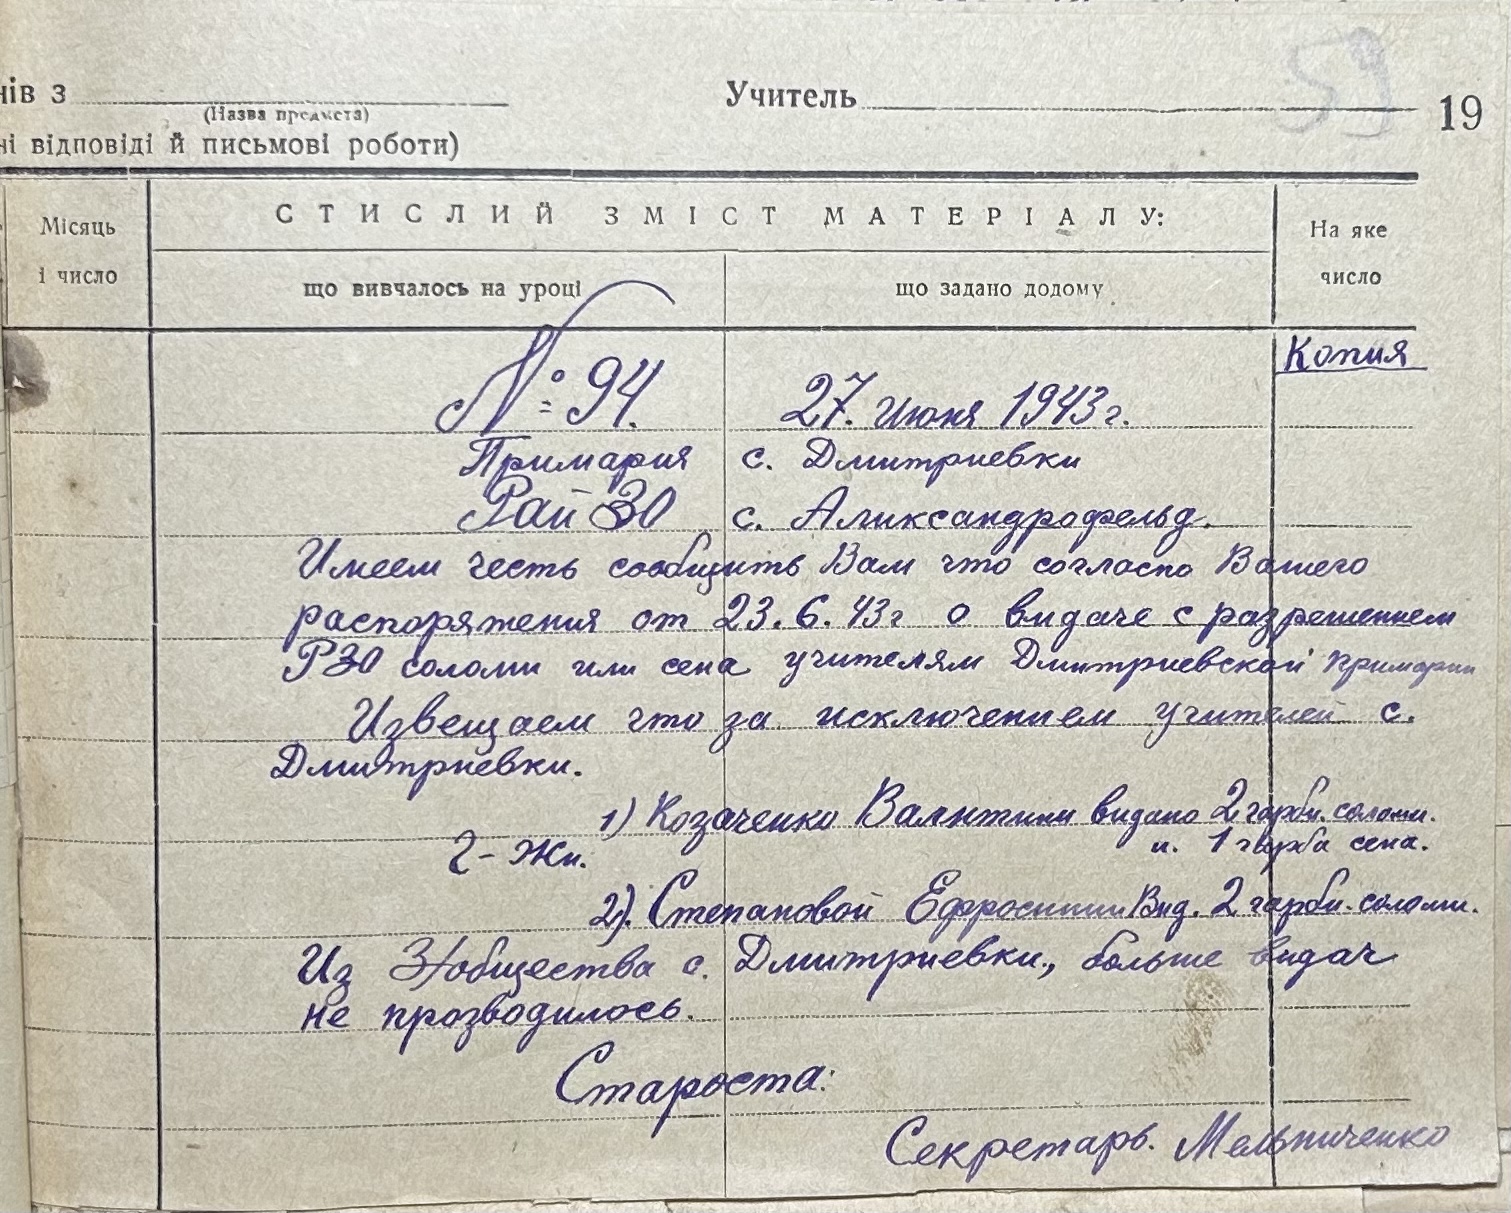 нів з Учитель 19
(Назва предмета)
ні відповіді й письмові роботи)
Місяць і число
СТИСЛИЙ ЗМІСТ МАТЕРІАЛУ:
На яке число
що вивчалось на уроці що задано додому
Копия
№ 94. 27. Июня 1943 г.
Примария с. Дмитриевки
Рай ЗО с. Аликсандрофельд.
Имеем честь сообщить Вам что согласно Вашего
распоряжения от 23.6.43 г о видаче с разрешением
РЗО соломи или сена учителям Дмитриевской примарии
Извещаем что за исключением учителей с.
Дмитриевки.
1) Козаченко Валнтини видано 2 гарби. соломи.
Г-жи. и. 1 гарба сена.
2). Степановой Ефросинии Вид. 2 гарби. соломи.
Из З/общества с. Дмитриевки, больше видач
не прозводилось.
Староста:
Секретарь. Мельниченко